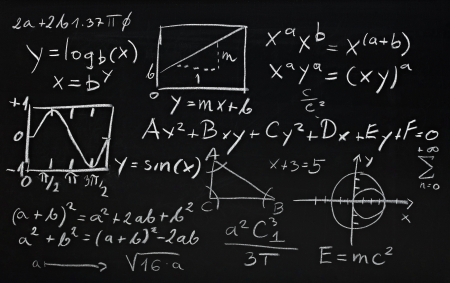 2a+2b 1.37 π ∅
y=log_b(x)
x=b^y
m
1
b
0
y=mx+b
x^a x^b = x^(a+b)
x^a y^a = (xy)^a
c/c²
+1
0
-1
0 π/2 π 3π/2
Ax²+Bxy+Cy²+Dx+Ey+F=0
y=sin(x)
A
C B
x+3=5
y
x
+∞
Σ
n=0
(a+b)²=a²+2ab+b²
a²+b²=(a+b)²-2ab
a → √16·a
E=mc²